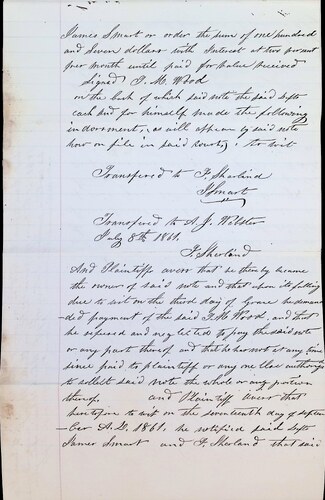 James Smart or order the sum of one hundred
and seven dollars with Interest at two per cent
per month until paid for value received
Signed T. M. Wood
on the back of which said note the said defts
each did for himself made the following
indorsment, as will appear by said note
now on file in said court, to wit
Transfered to F. Sherland
J Smart
Transfered to A. J. Webster
July 8th 1861.
F. Sherland
And Plaintiff avers that he thereby became
the owner of said note and that upon its falling
due to wit on the third day of Grace he deman
ded payment of the said T. M Wood, and that
he refused and neglected to pay the said note
or any part thereof and that he has not at any time
since paid to plaintiff or any one else authorized
to collect said note the whole or any portion
thereof. and Plaintiff avers that
heretofore to wit on the seventeenth day of septem
-ber A.D. 1861. he notified said defts
James Smart and F. Sherland that said